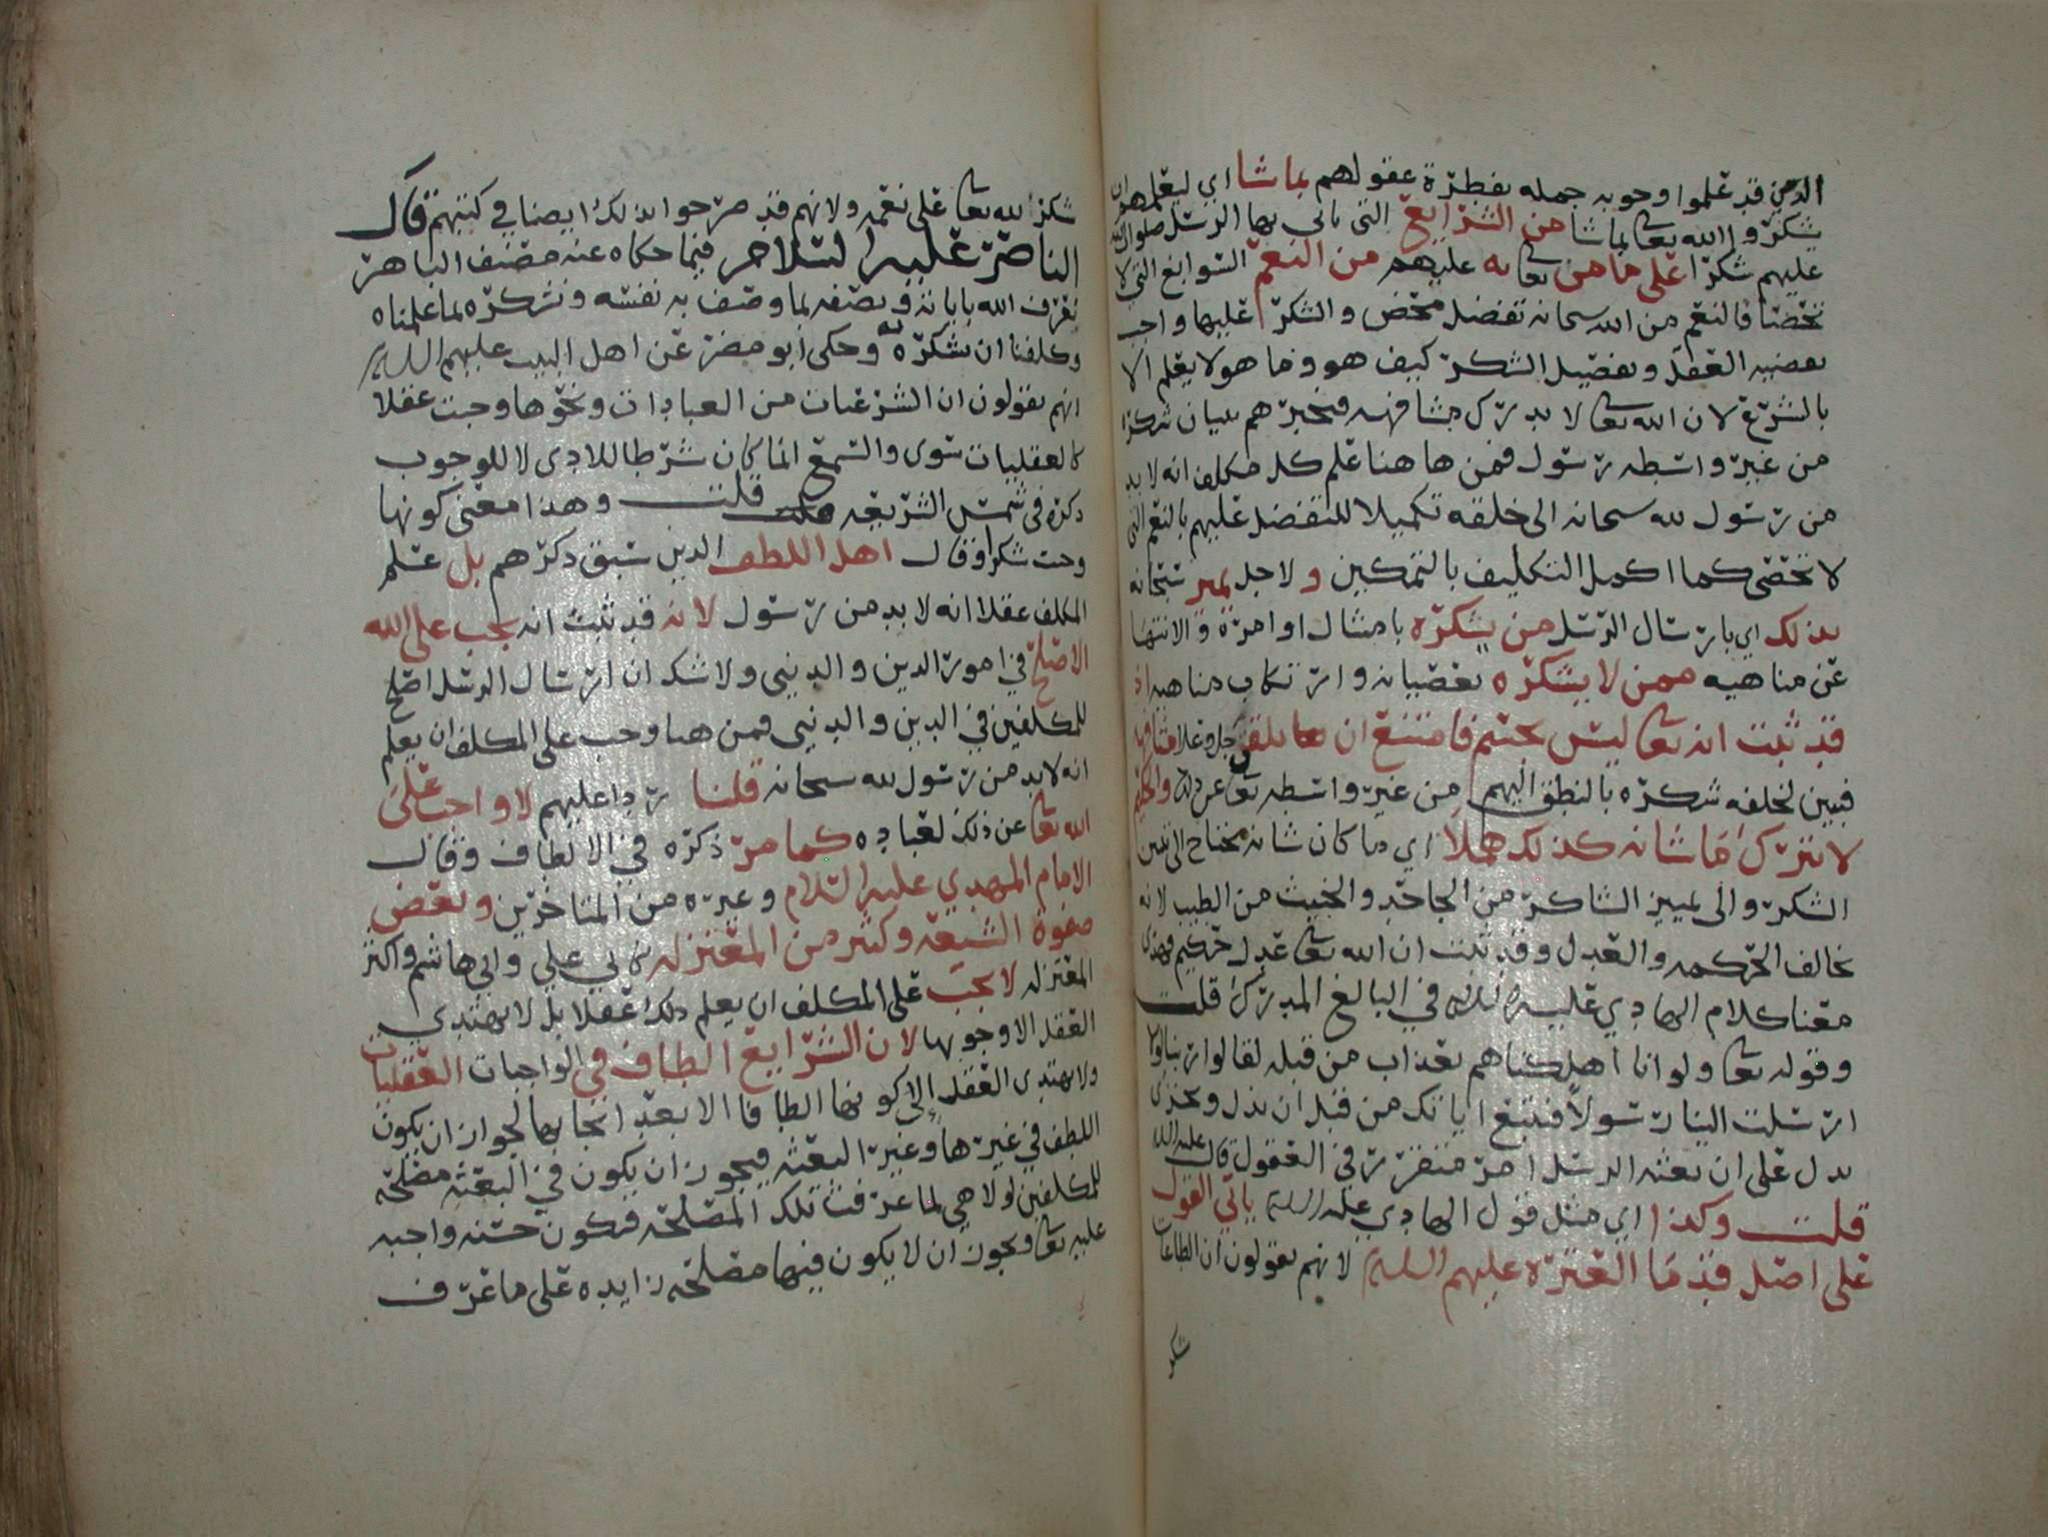 الذين قد علموا وجوبه جمله بفطرة عقولهم بما شا اي ليعلمهم ان
يشكروا الله تعا بما شا من الشرايع التي ياتي بها الرسل صلوات الله
عليهم شكرا على ما من تعا به عليهم من النعم السوابغ التي لا
تحصا فالنعم من الله سبحانه تفضل محض والشكر عليها واجب
بقضيه العقل وتفصيل الشكر كيف هو وما هو لا يعلم الا
بالشرع لان الله تعا لا يدرك مشافهه فيخبرهم ببيان شكره
من غير واسطه رسول فمن هاهنا علم كل مكلف انه لا بد
من رسول لله سبحانه الى خلقه تكميلا للتفضل عليهم بالنعم التي
لا تحصى كما اكمل التكليف بالتمكين ولاجل يميز سبحانه
بذلك اي بارسال الرسل من يشكره بامتثال اوامره والانتها
عن مناهيه ممن لا يشكره بعصيانه وارتكاب مناهيه اذ
قد ثبت انه تعا ليس بجسم فامتنع ان جل وعلا مشافهه
فيبين لخلقه شكره بالنطق اليهم من غير واسطه تعا عن ذلك والحكيم
لا يترك ما شانه كذلك هملا اي ما كان شانه يحتاج الى تبيين
الشكر والى تمييز الشاكر من الجاحد والخبيث من الطيب لانه
يخالف الحكمه والعدل وقد ثبت ان الله تعا عدل حكيم فهذى
معنا كلام الهادي عليه السلام في البالغ المدرك قلت
وقوله تعا ولو انا اهلكناهم بعذاب من قبله لقالوا ربنا لولا
ارسلت الينا رسولا فنتبع اياتك من قبل ان نذل ونخزى
يدل على ان بعثه الرسل امر متقرر في العقول قال عليه السلام
قلت وكذا اي مثل قول الهادي عليه السلام ياتي القول
على اصل قدما العترة عليهم السلام لانهم يقولون ان الطاعات
شكر
شكر الله تعا على نعمه ولانهم قد صرحوا بذلك ايضا في كتبهم قال
الناصر عليه السلام فيما حكاه عنه مصنف الباهر
نعرف الله باياته ونصفه بما وصف به نفسه ونشكره لما علمناه
وكلفنا ان نشكره به وحكى ابو مضر عن اهل البيت عليهم السلام
انهم يقولون ان الشرعيات من العبادات ونحوها وجبت عقلا
كالعقليات سوى والسمع انما كان شرطا للادى لا للوجوب
ذكره في شمس الشريعه قلت وهذا معنى كونها
وجبت شكرا وقال اهل اللطف الذين سبق ذكرهم بل علم
المكلف عقلا انه لا بد من رسول لانه قد ثبت انه يجب على الله
الاصلح في امور الدين والدنيى ولا شك ان ارسال الرسل اصلح
للمكلفين في الدين والدنيى فمن هنا وجب على المكلف ان يعلم
انه لا بد من رسول لله سبحانه قلنا ردا عليهم لا واجب على
الله تعا عن ذلك لعباده كما مر ذكره في الالطاف وقال
الامام المهدي عليه السلام وغيره من المتاخرين وبعض
صفوة الشيعه وكثير من المعتزله كابي علي وابي هاشم واكثر
المعتزله لا يجب على المكلف ان يعلم ذلك عقلا بل لا يهتدي
العقل الا وجوبها لان الشرايع الطاف في الواجبات العقليات
ولا يهتدى العقل الى كونها الطافا الا بعد ايجابها لجواز ان يكون
اللطف في غيرها وغير البعثه فيجوز ان يكون في البعثه مصلحه
للمكلفين لولا هي لما عرفت تلك المصلحه فتكون حسنه واجبه
عليه تعا ويجوز ان لا يكون فيها مصلحه زايده على ما عرف